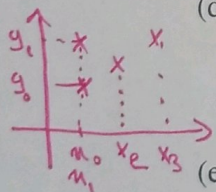 (c
y₁
y₀
x₀ x₂ x₃
x₁
(e